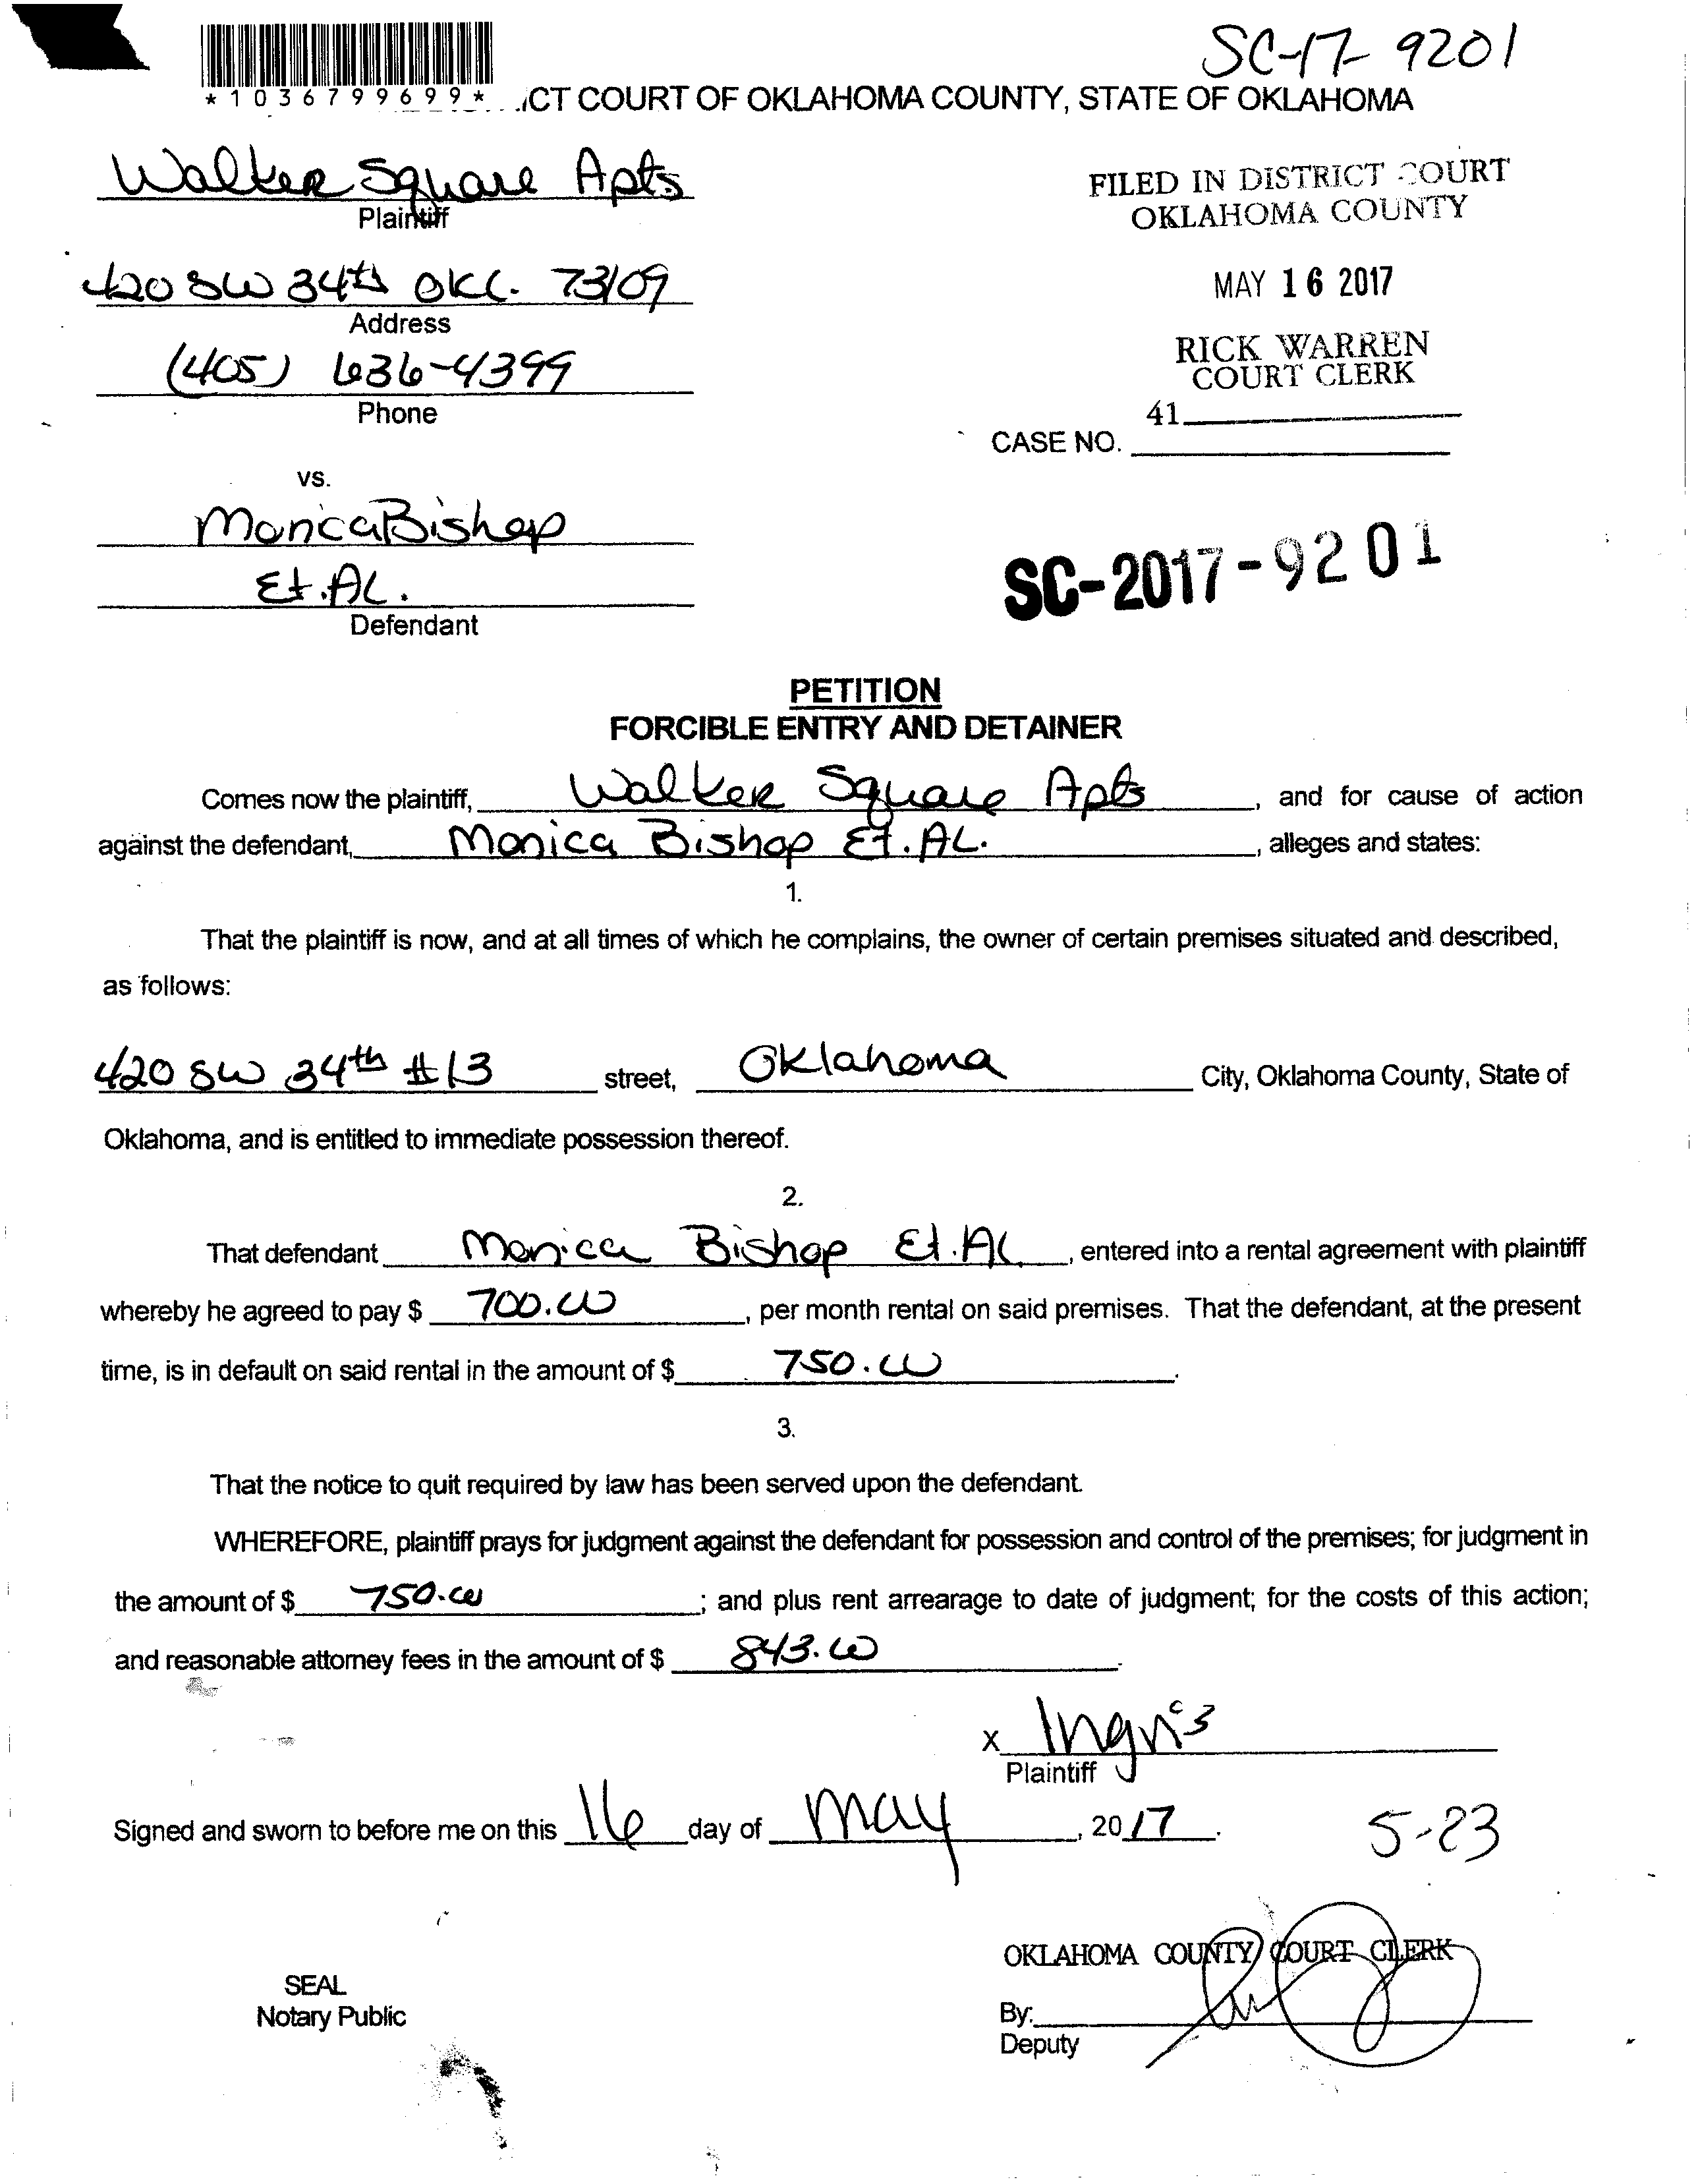 SC-17-9201
*1036799699*
ICT COURT OF OKLAHOMA COUNTY, STATE OF OKLAHOMA
Walker Square Apts
Plaintiff
FILED IN DISTRICT COURT
OKLAHOMA COUNTY
420 SW 34th OKC. 73109
Address
MAY 16 2017
(405) 636-4399
Phone
RICK WARREN
COURT CLERK
41
CASE NO.
vs.
Monica Bishop
Et.AL.
Defendant
SC-2017-9201
PETITION
FORCIBLE ENTRY AND DETAINER
Comes now the plaintiff, Walker Square Apts, and for cause of action
against the defendant, Monica Bishop Et.AL., alleges and states:
1.
That the plaintiff is now, and at all times of which he complains, the owner of certain premises situated and described,
as follows:
420 SW 34th #13 street, Oklahoma City, Oklahoma County, State of
Oklahoma, and is entitled to immediate possession thereof.
2.
That defendant Monica Bishop Et.AL., entered into a rental agreement with plaintiff
whereby he agreed to pay $ 700.00, per month rental on said premises. That the defendant, at the present
time, is in default on said rental in the amount of $ 750.00.
3.
That the notice to quit required by law has been served upon the defendant.
WHEREFORE, plaintiff prays for judgment against the defendant for possession and control of the premises; for judgment in
the amount of $ 750.00; and plus rent arrearage to date of judgment; for the costs of this action;
and reasonable attorney fees in the amount of $ 843.00.
X
Plaintiff
Signed and sworn to before me on this 16 day of May, 2017.
5-23
OKLAHOMA COUNTY COURT CLERK
SEAL
Notary Public
By:
Deputy